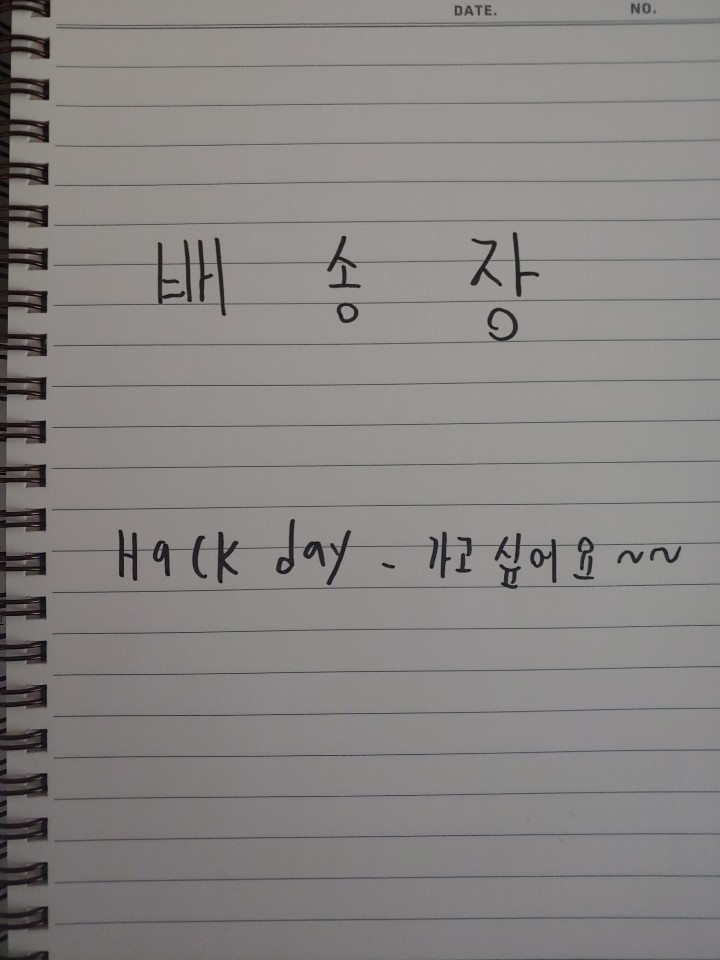 DATE. NO.
배 송 장
Hack day - 가고 싶어요 ~~